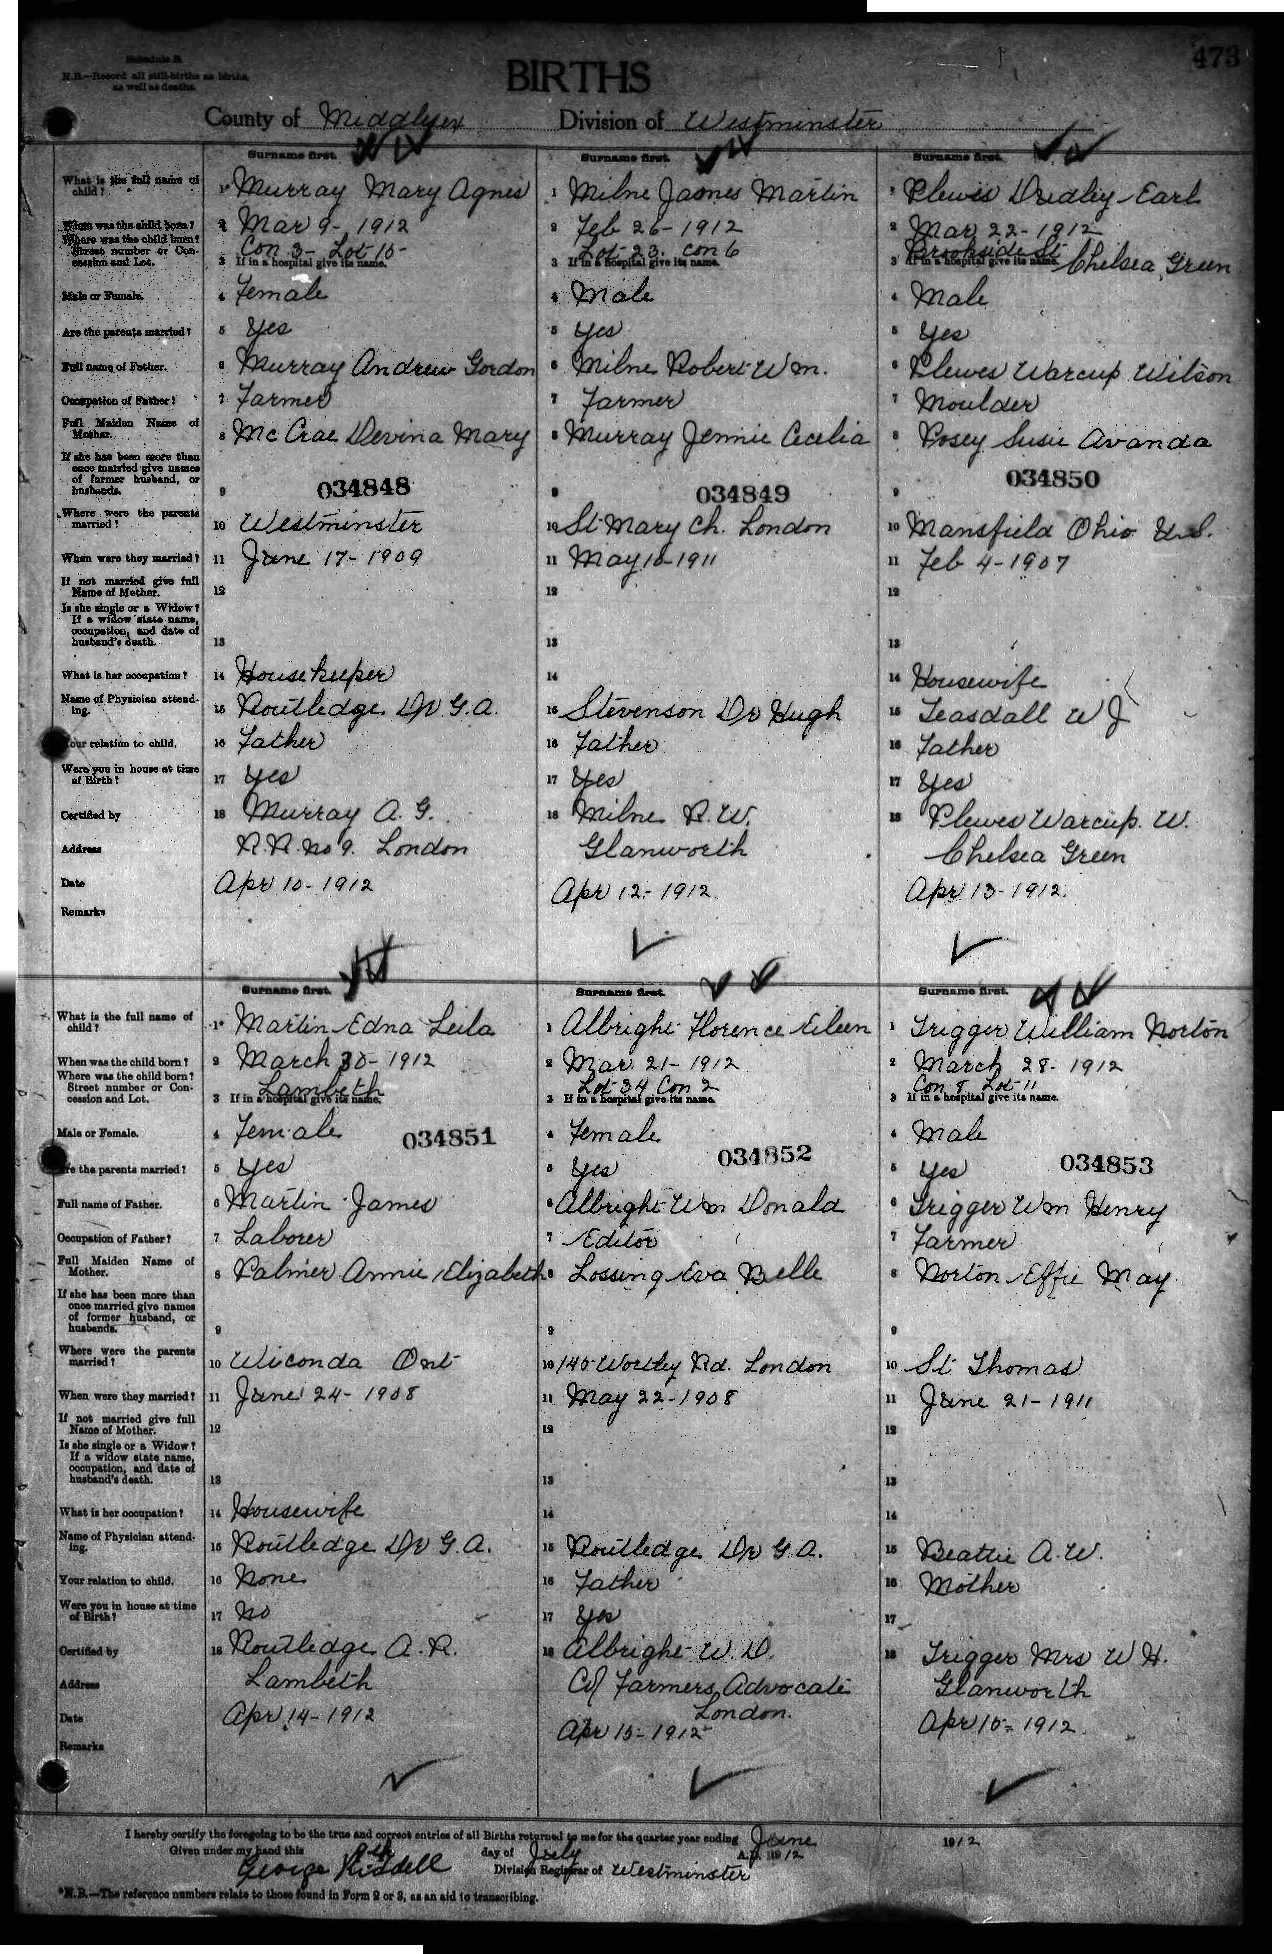 473
Schedule B.
N.B.—Record all still-births as births, as well as deaths.
BIRTHS
County of Middlesex Division of Westminster
Surname first. Surname first. Surname first.
What is the full name of child? 1* Murray Mary Agnes 1 Milne James Martin 1 Plewes Dudley Earl
When was the child born? 2 Mar 9- 1912 2 Feb 26-1912 2 Mar 22-1912
Where was the child born? Street number or Concession and Lot. Con 3- Lot 15- Lot 23. Con 6 Brookside St Chelsea Green
3 If in a hospital give its name. 3 If in a hospital give its name. 3 If in a hospital give its name.
Male or Female. 4 Female 4 Male 4 Male
Are the parents married? 5 Yes 5 Yes 5 Yes
Full name of Father. 6 Murray Andrew Gordon 6 Milne Robert Wm. 6 Plewes Warcup Wilson
Occupation of Father? 7 Farmer 7 Farmer 7 Moulder
Full Maiden Name of Mother. 8 McCrae Devina Mary 8 Murray Jennie Cecelia 8 Posey Susie Avanda
If she has been more than once married give names of former husband, or husbands. 9 034848 9 034849 9 034850
Where were the parents married? 10 Westminster 10 St Mary Ch. London 10 Mansfield Ohio U.S.
When were they married? 11 June 17-1909 11 May 10-1911 11 Feb 4-1907
If not married give full Name of Mother. 12 12 12
Is she single or a Widow? If a widow state name, occupation, and date of husband's death. 13 13 13
What is her occupation? 14 Housekeeper 14 14 Housewife
Name of Physician attending. 15 Routledge Dr G.A. 15 Stevenson Dr Hugh 15 Teasdall W J
Your relation to child. 16 Father 16 Father 16 Father
Were you in house at time of Birth? 17 Yes 17 Yes 17 Yes
Certified by 18 Murray A. G. 18 Milne R. W. 18 Plewes Warcup. W.
Address R.R. No 9. London Glanworth Chelsea Green
Date Apr 10-1912 Apr 12-1912 Apr 13-1912
Remarks
Surname first. Surname first. Surname first.
What is the full name of child? 1* Martin Edna Leila 1 Albright Florence Eileen 1 Trigger William Norton
When was the child born? 2 March 30-1912 2 Mar 21-1912 2 March 28-1912
Where was the child born? Street number or Concession and Lot. Lambeth Lot 34 Con 2 Con 8 Lot 11
3 If in a hospital give its name. 3 If in a hospital give its name. 3 If in a hospital give its name.
Male or Female. 4 Female 034851 4 Female 034852 4 Male 034853
Are the parents married? 5 Yes 5 Yes 5 Yes
Full name of Father. 6 Martin James 6 Albright Wm Donald 6 Trigger Wm Henry
Occupation of Father? 7 Laborer 7 Editor 7 Farmer
Full Maiden Name of Mother. 8 Palmer Annie Elizabeth 8 Lossing Eva Belle 8 Norton Effie May
If she has been more than once married give names of former husband, or husbands. 9 9 9
Where were the parents married? 10 Wiconda Ont 10 140 Wortley Rd. London 10 St Thomas
When were they married? 11 June 24-1908 11 May 22-1908 11 June 21-1911
If not married give full Name of Mother. 12 12 12
Is she single or a Widow? If a widow state name, occupation, and date of husband's death. 13 13 13
What is her occupation? 14 Housewife 14 14
Name of Physician attending. 15 Routledge Dr G.A. 15 Routledge Dr G.A. 15 Beattie A.W.
Your relation to child. 16 None 16 Father 16 Mother
Were you in house at time of Birth? 17 No 17 Yes 17
Certified by 18 Routledge A. R. 18 Albright W. D. 18 Trigger Mrs W H.
Address Lambeth C/o Farmers Advocate London. Glanworth
Date Apr 14-1912 Apr 15-1912 Apr 15-1912
Remarks
I hereby certify the foregoing to be the true and correct entries of all Births returned to me for the quarter year ending June 1912
Given under my hand this day of July A.D. 1912
George Riddell Division Registrar of Westminster
*N.B.—The reference numbers relate to those found in Form 2 or 3, as an aid to transcribing.